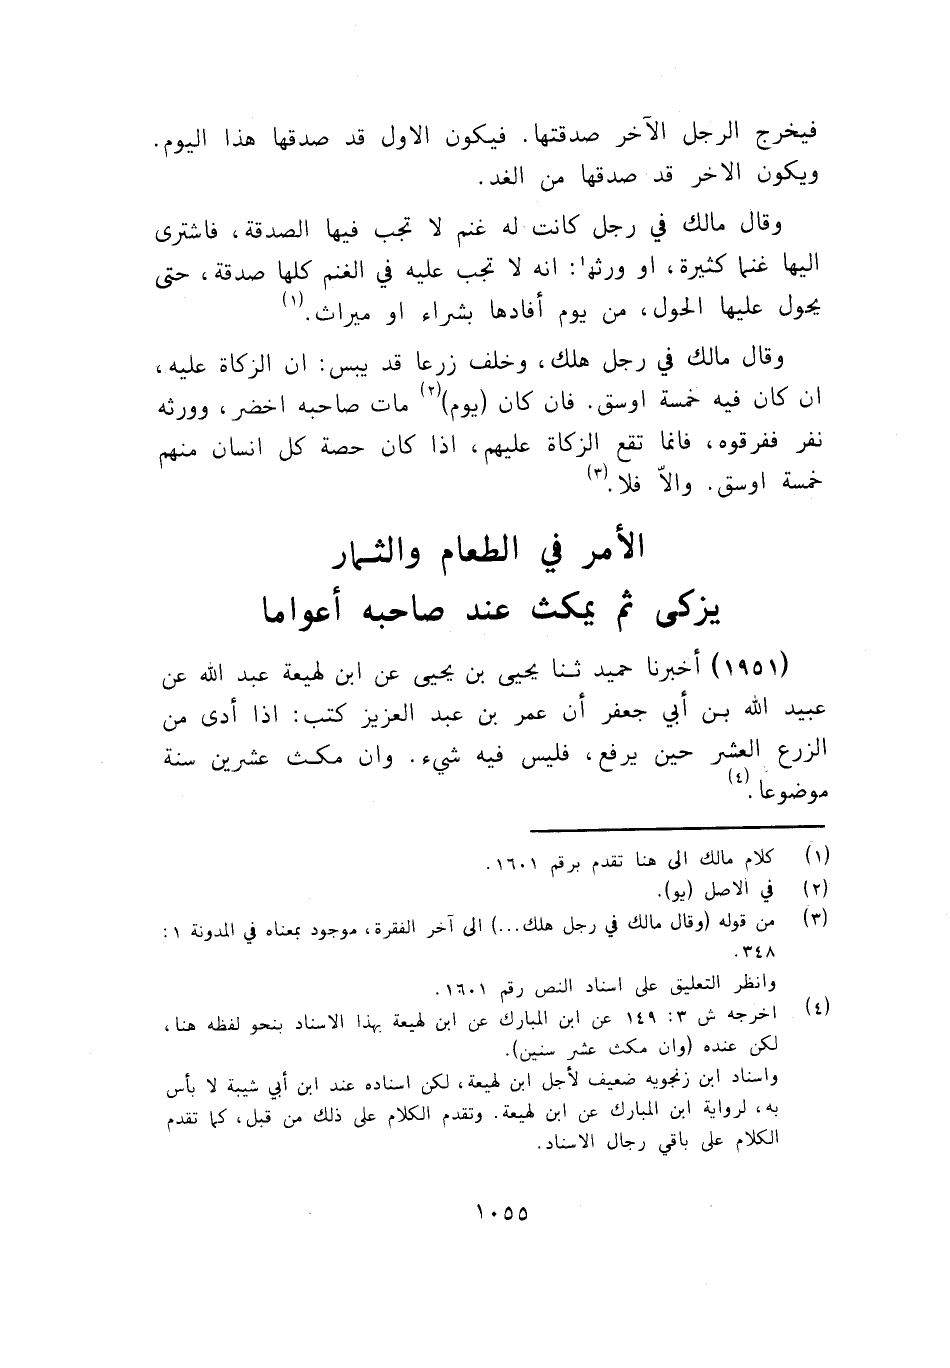 فيخرج الرجل الآخر صدقتها. فيكون الاول قد صدقها هذا اليوم.
ويكون الاخر قد صدقها من الغد.
وقال مالك في رجل كانت له غنم لا تجب فيها الصدقة، فاشترى
اليها غنما كثيرة، او ورثها: انه لا تجب عليه في الغنم كلها صدقة، حتى
يحول عليها الحول، من يوم أفادها بشراء او ميراث.(١)
وقال مالك في رجل هلك، وخلف زرعا قد يبس: ان الزكاة عليه،
ان كان فيه خمسة اوسق. فان كان (يوم)(٢) مات صاحبه اخضر، وورثه
نفر ففرقوه، فانما تقع الزكاة عليهم، اذا كان حصة كل انسان منهم
خمسة اوسق. والاّ فلا.(٣)
الأمر في الطعام والثمار
يزكى ثم يمكث عند صاحبه أعواما
(١٩٥١) أخبرنا حميد ثنا يحيى بن يحيى عن ابن لهيعة عبد الله عن
عبيد الله بن أبي جعفر أن عمر بن عبد العزيز كتب: اذا أدى من
الزرع العشر حين يرفع، فليس فيه شيء. وان مكث عشرين سنة
موضوعا.(٤)
(١) كلام مالك الى هنا تقدم برقم ١٦٠١.
(٢) في الاصل (يو).
(٣) من قوله (وقال مالك في رجل هلك...) الى آخر الفقرة، موجود بمعناه في المدونة ١:
٣٤٨.
وانظر التعليق على اسناد النص رقم ١٦٠١.
(٤) اخرجه ش ٣: ١٤٩ عن ابن المبارك عن ابن لهيعة بهذا الاسناد بنحو لفظه هنا،
لكن عنده (وان مكث عشر سنين).
واسناد ابن زنجويه ضعيف لأجل ابن لهيعة، لكن اسناده عند ابن أبي شيبة لا بأس
به، لرواية ابن المبارك عن ابن لهيعة. وتقدم الكلام على ذلك من قبل، كما تقدم
الكلام على باقي رجال الاسناد.
١٠٥٥